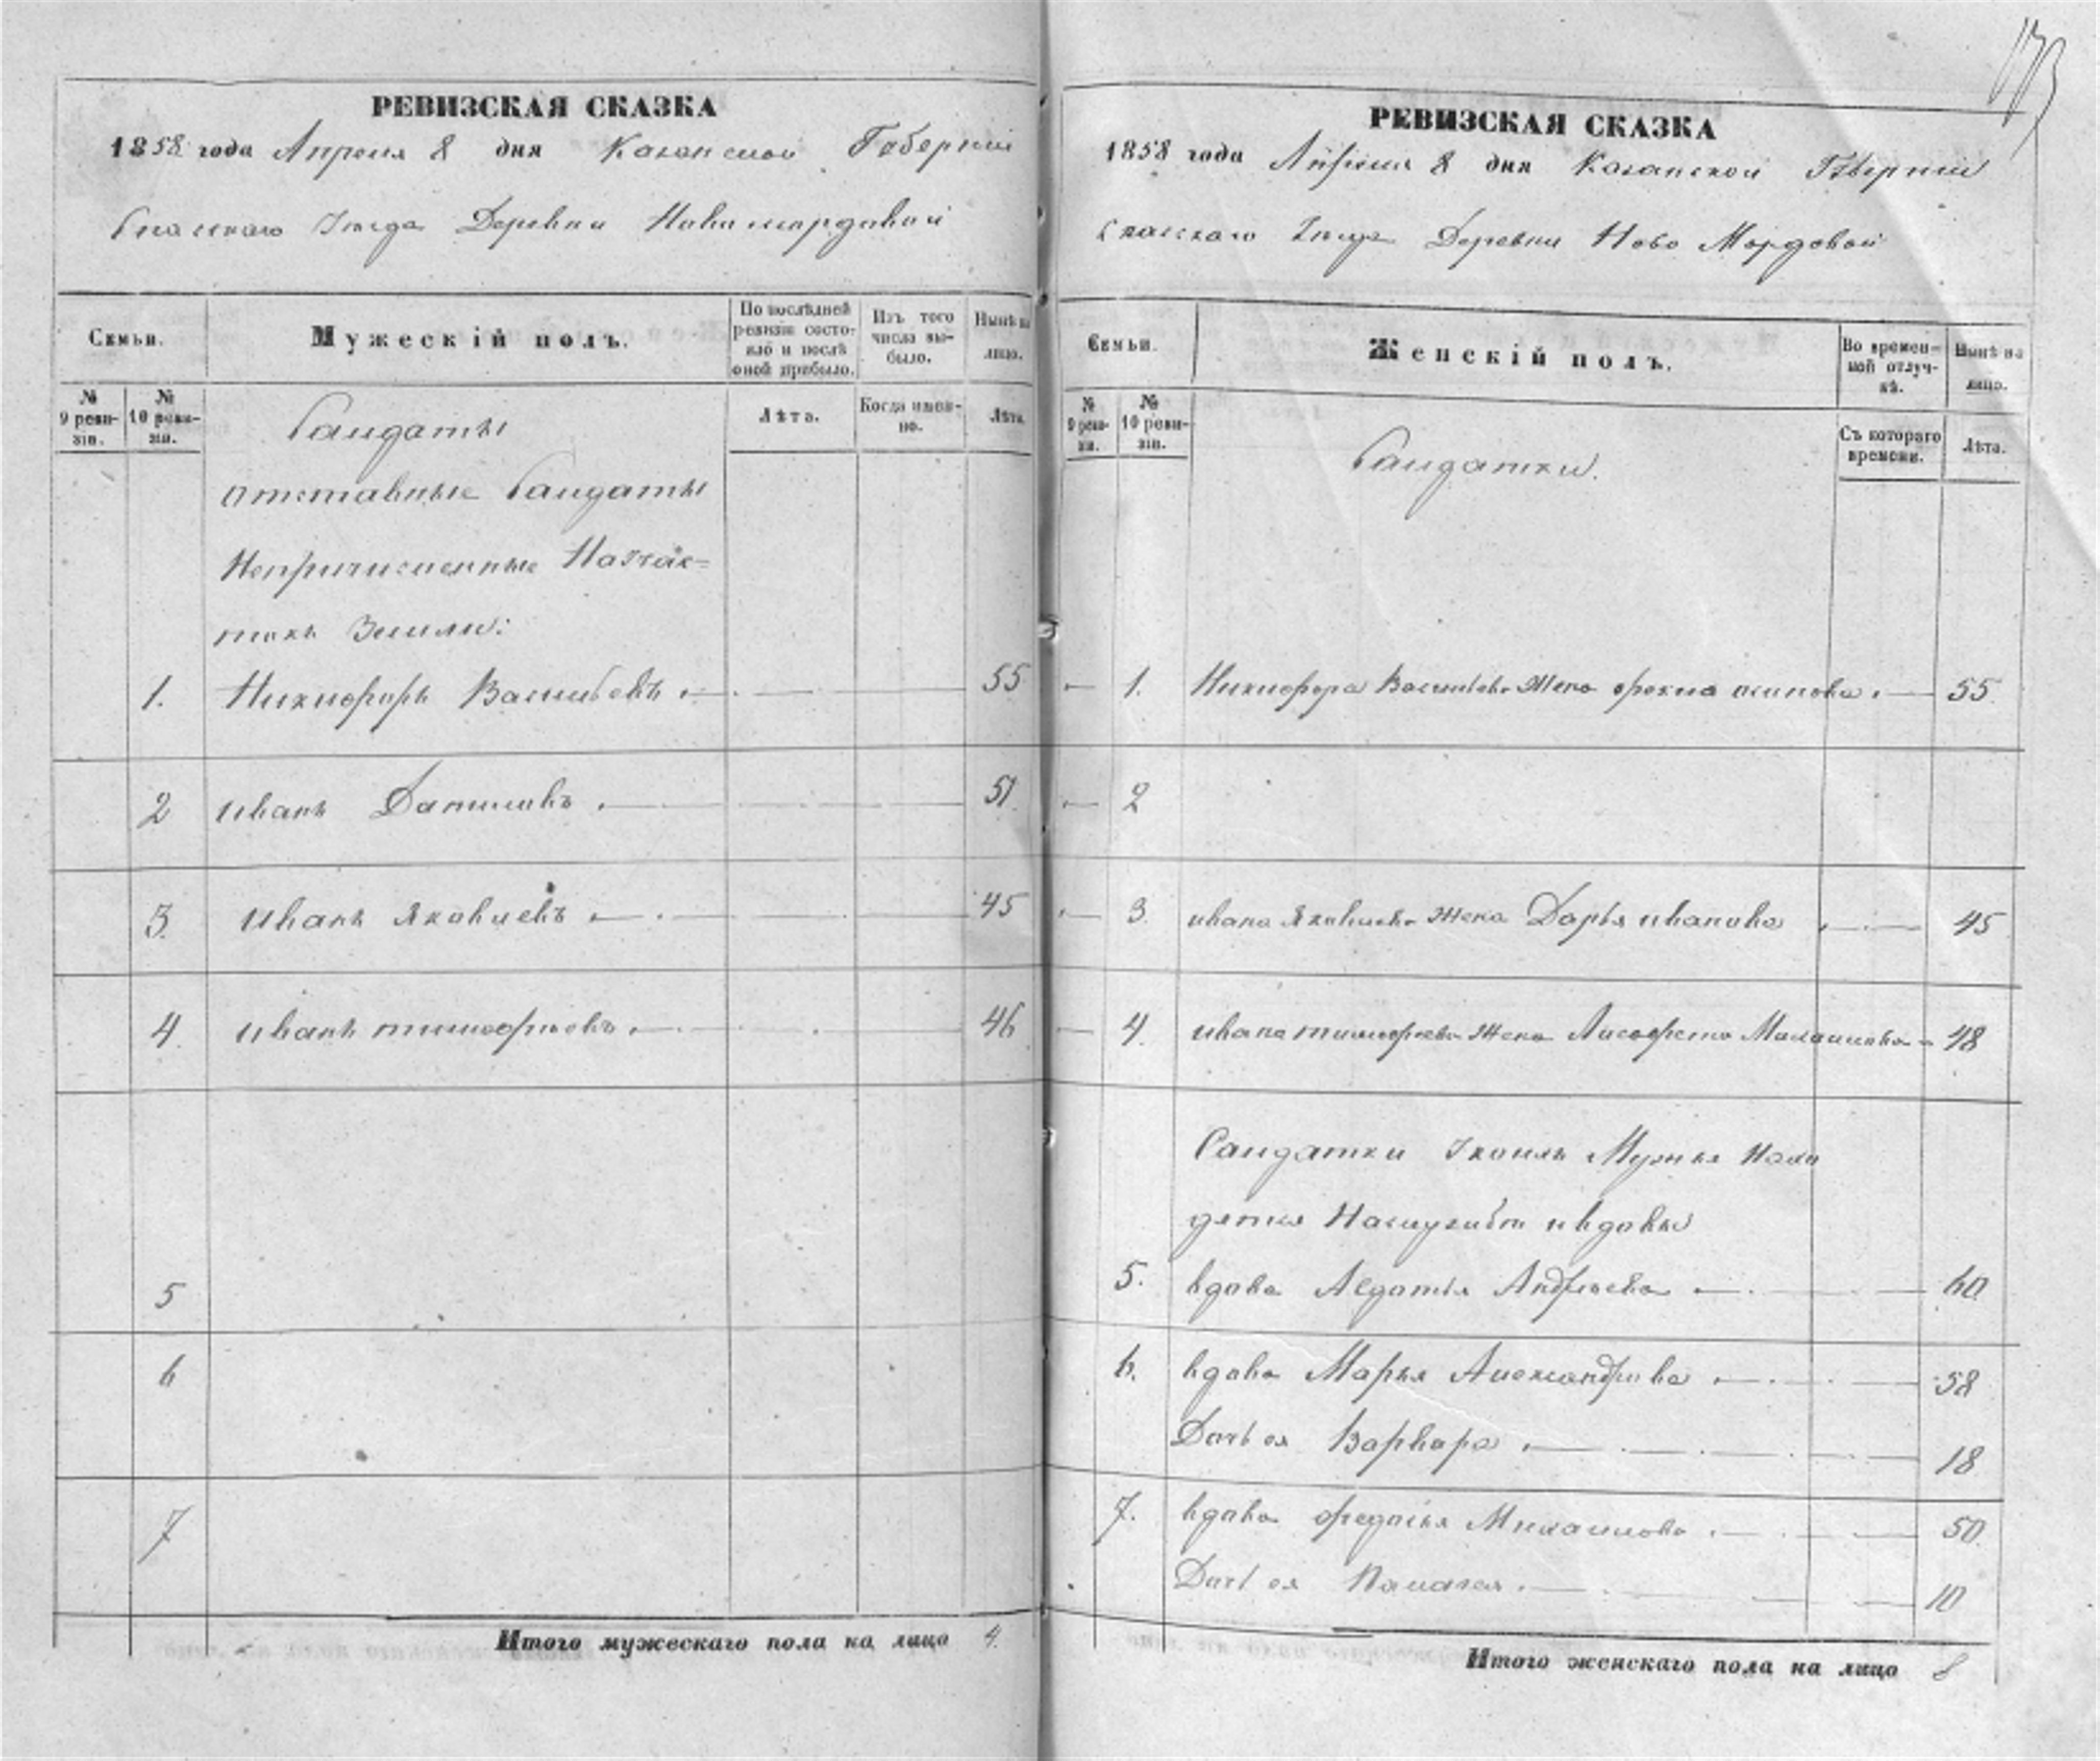 173
РЕВИЗСКАЯ СКАЗКА
1858 года Апреля 8 дня Казанской Губернии
Спаскаго Уезда Деревни Новамордовой
Семьи.
Мужескій полъ.
По послѣдней ревизіи состояло и послѣ оной прибыло.
Изъ того числа выбыло.
Нынѣ на лицо.
№ 9 ревизіи.
№ 10 ревизіи.
Лѣта.
Когда именно.
Лѣта.
Салдаты
отставные Салдаты
Непричисленные
Земли:
1. Никифоръ Васильевъ 55
2 иванъ Даниловъ 51.
3. иванъ Яковлевъ 45
4. иванъ тимофеевъ 46
5
6
7
Итого мужескаго пола на лицо 4.
РЕВИЗСКАЯ СКАЗКА
1858 года Апреля 8 дня Казанской Губернии
Спаскаго Уезда Деревни Ново Мордовой
Семьи.
Женскій полъ.
Во временной отлучкѣ.
Нынѣ на лицо.
№ 9 ревизіи.
№ 10 ревизіи.
Съ котораго времени.
Лѣта.
Салдатки.
1. Никифора Васильева Жена осипова 55
2
3 ивана Яковлева Жена Дарья иванова 45
4. ивана тимофеева Жена Михаилова 48
Салдатки Мужья Нахо
дятся Наслужбе и вдовы
5. вдова Авдотья Андреева 60
6. вдова Марья Александрова 58
Дочь ея Варвара 18
7. вдова федосья Михаилова 50
Дочь ея Палагея 10
Итого женскаго пола на лицо 8